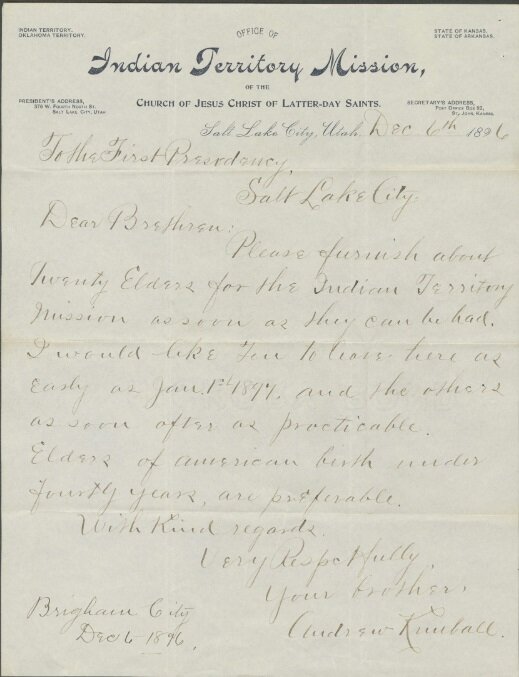 INDIAN TERRITORY.
OKLAHOMA TERRITORY.
OFFICE OF
STATE OF KANSAS.
STATE OF ARKANSAS.
Indian Territory Mission,
OF THE
CHURCH OF JESUS CHRIST OF LATTER-DAY SAINTS.
PRESIDENT'S ADDRESS,
376 W. FOURTH NORTH ST.
SALT LAKE CITY, UTAH
SECRETARY'S ADDRESS,
POST OFFICE BOX 82,
ST. JOHN, KANSAS.
Salt Lake City, Utah, Dec 6th 1896
To the First Presedency,
Salt Lake City.
Dear Brethren:
Please furnish about
Twenty Elders for the Indian Territory
Mission as soon as they can be had.
I would like Ten to leave here as
early as Jan. 1st 1897. and the others
as soon after as practicable.
Elders of american birth under
fourty years, are preferable.
With Kind regards
Very Respectfully,
Your brother,
Andrew Kimball.
Brigham City
Dec 6 1896.